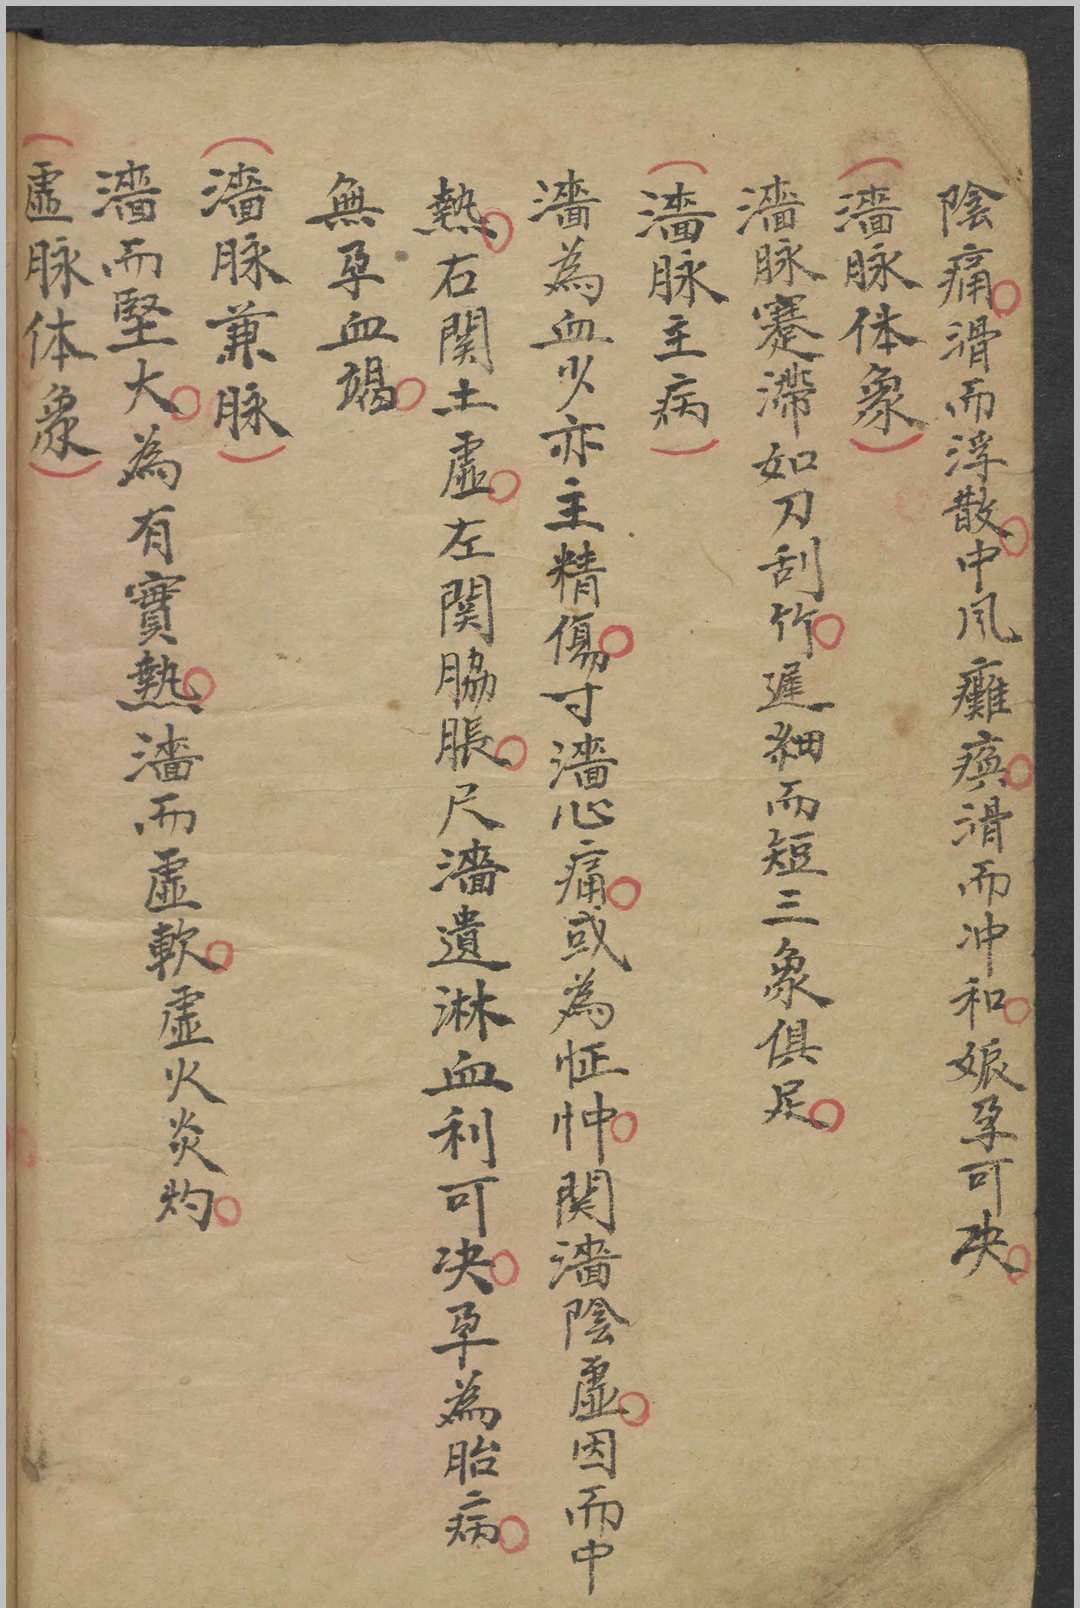 陰痛。滑而浮散。中風癱瘓。滑而冲和。娠孕可决。
(濇脉体象)
濇脉蹇滯如刀刮竹。遲細而短三象俱足。
(濇脉主病)
濇為血少亦主精傷。寸濇心痛。或為怔忡。関濇陰虛。因而中
熱。右関土虛。左関脇脹。尺濇遺淋血利可决。孕為胎病。
無孕血竭。
(濇脉兼脉)
濇而堅大。為有實熱。濇而虛軟。虛火炎灼。
(虛脉体象)